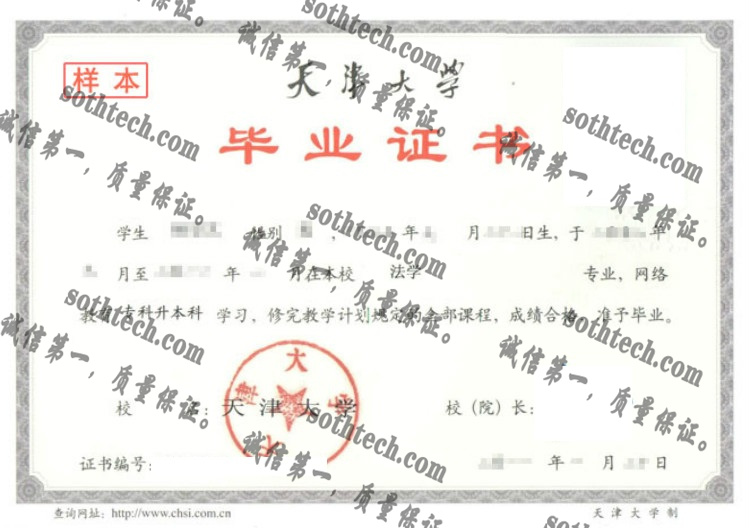 样本
天津大学
毕业证书
学生 性别 , 年 月 日生，于 年
月至 年 月在本校 法学 专业，网络
教育 专科升本科 学习，修完教学计划规定的全部课程，成绩合格，准予毕业。
校 名：天津大学 校（院）长：
天津大学
证书编号： 年 月 日
查询网址：http://www.chsi.com.cn 天津大学制
sothtech.com
诚信第一，质量保证。
sothtech.com
诚信第一，质量保证。
sothtech.com
诚信第一，质量保证。
sothtech.com
诚信第一，质量保证。
sothtech.com
诚信第一，质量保证。
sothtech.com
诚信第一，质量保证。
sothtech.com
诚信第一，质量保证。